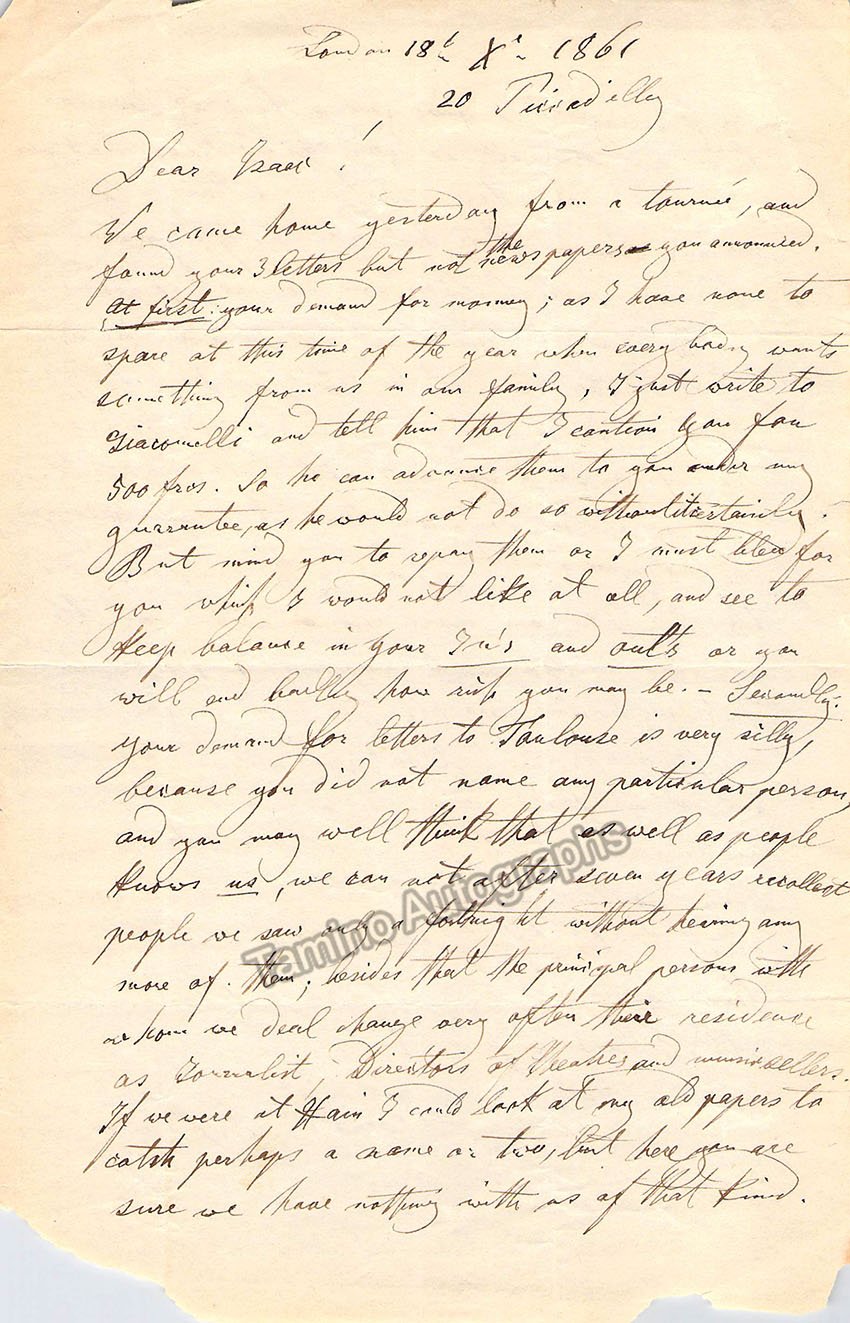 London 18th Xr 1861
20 Piccadilly
Dear Isaac !
We came home yesterday from a tourneé, and
found your 3 letters but not the newspapers you announced.
At first: your demand for monney; as I have none to
spare at this time of the year when every body wants
something from us in our family, I just write to
Giacomelli and tell him that I caution you for
500 frcs. So he can advance them to you under my
guarrantee, as he would not do so without it certainly.
But mind you to repay them or I must for
you which I would not like at all, and see to
Keep balance in your In's and outs or you
will end badly how rich you may be. – Secondly:
your demand for letters to Toulouse is very silly,
because you did not name any particular person,
and you may well think that as well as people
Knows us, we can not after seven years recollect
people we saw only a fortnight without hearing any
more of them; besides that the principal persons with
whom we deal change very often their residence
as Journalist, Directors of Theatres and musicsellers.
If we were at Ham I could look at my old papers to
catch perhaps a name or two, but here you are
sure we have nothing with us of that Kind.
Tamino Autographs